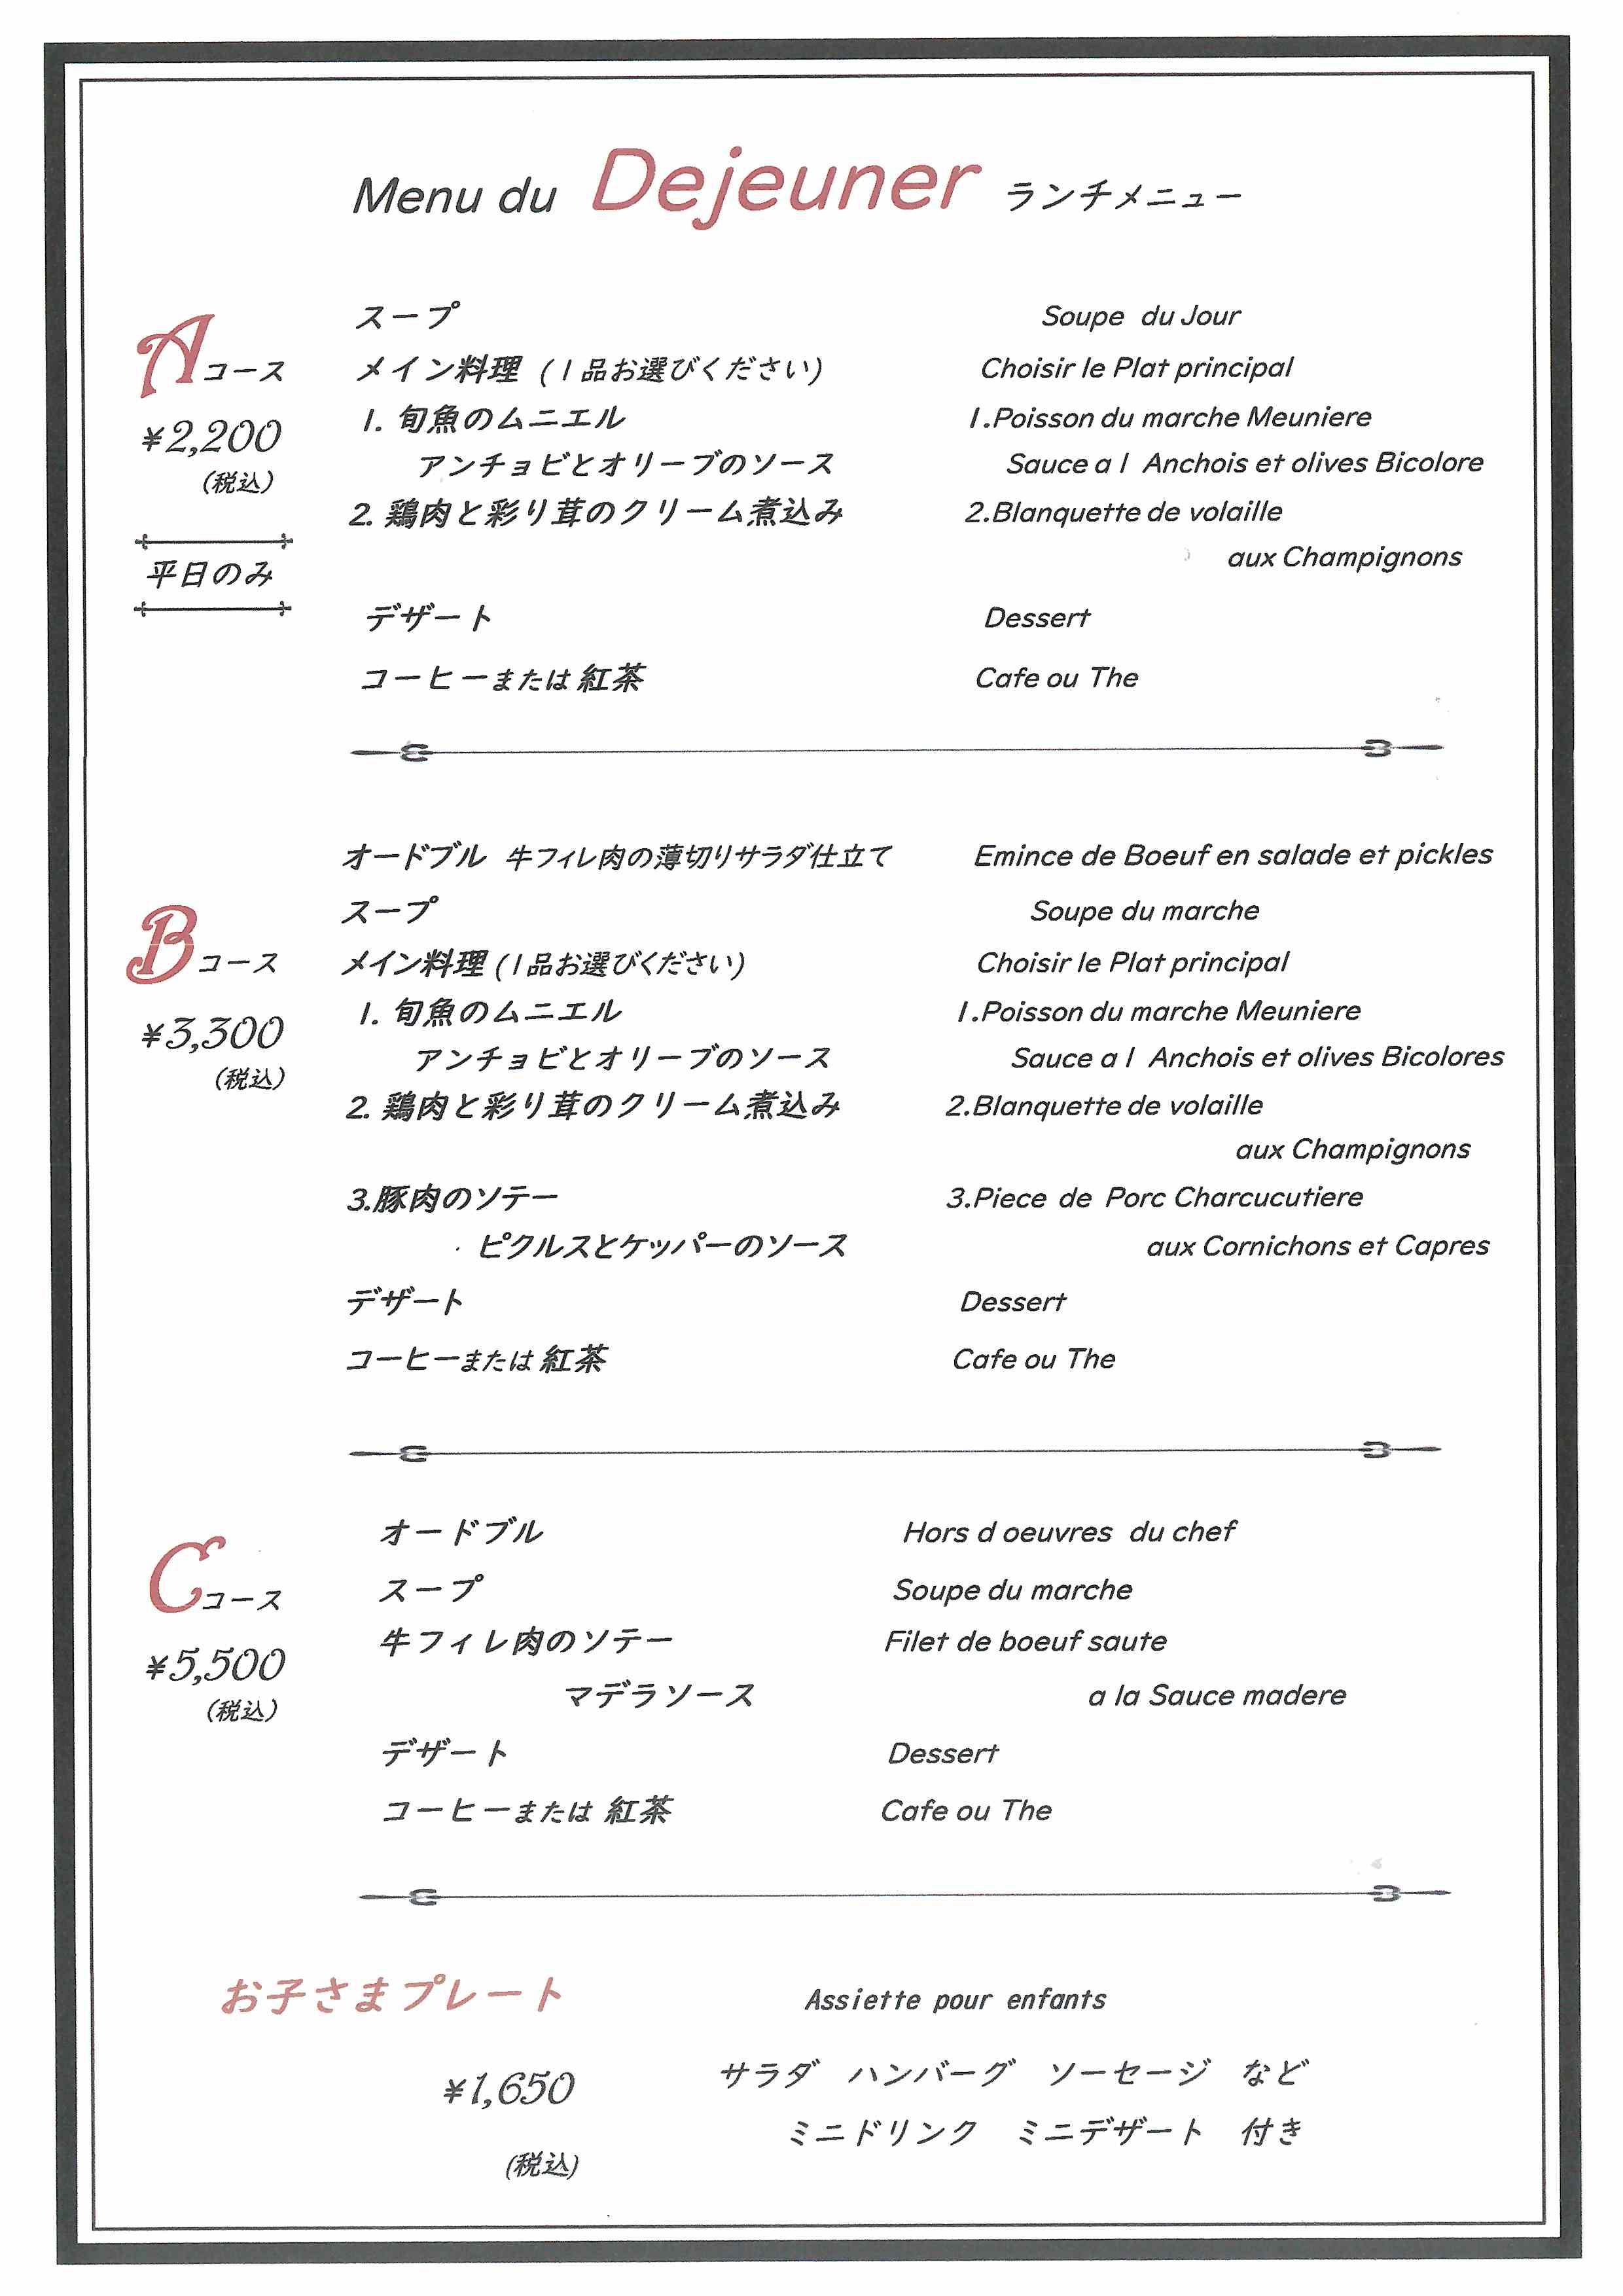 Menu du Dejeuner ランチメニュー
Aコース
¥2,200
(税込)
平日のみ
スープ Soupe du Jour
メイン料理 (1品お選びください) Choisir le Plat principal
1. 旬魚のムニエル 1.Poisson du marche Meuniere
アンチョビとオリーブのソース Sauce a l Anchois et olives Bicolore
2. 鶏肉と彩り茸のクリーム煮込み 2.Blanquette de volaille
aux Champignons
デザート Dessert
コーヒーまたは紅茶 Cafe ou The
Bコース
¥3,300
(税込)
オードブル 牛フィレ肉の薄切りサラダ仕立て Emince de Boeuf en salade et pickles
スープ Soupe du marche
メイン料理 (1品お選びください) Choisir le Plat principal
1. 旬魚のムニエル 1.Poisson du marche Meuniere
アンチョビとオリーブのソース Sauce a l Anchois et olives Bicolores
2. 鶏肉と彩り茸のクリーム煮込み 2.Blanquette de volaille
aux Champignons
3.豚肉のソテー 3.Piece de Porc Charcucutiere
ピクルスとケッパーのソース aux Cornichons et Capres
デザート Dessert
コーヒーまたは紅茶 Cafe ou The
Cコース
¥5,500
(税込)
オードブル Hors d oeuvres du chef
スープ Soupe du marche
牛フィレ肉のソテー Filet de boeuf saute
マデラソース a la Sauce madere
デザート Dessert
コーヒーまたは 紅茶 Cafe ou The
お子さまプレート Assiette pour enfants
¥1,650
(税込)
サラダ ハンバーグ ソーセージ など
ミニドリンク ミニデザート 付き